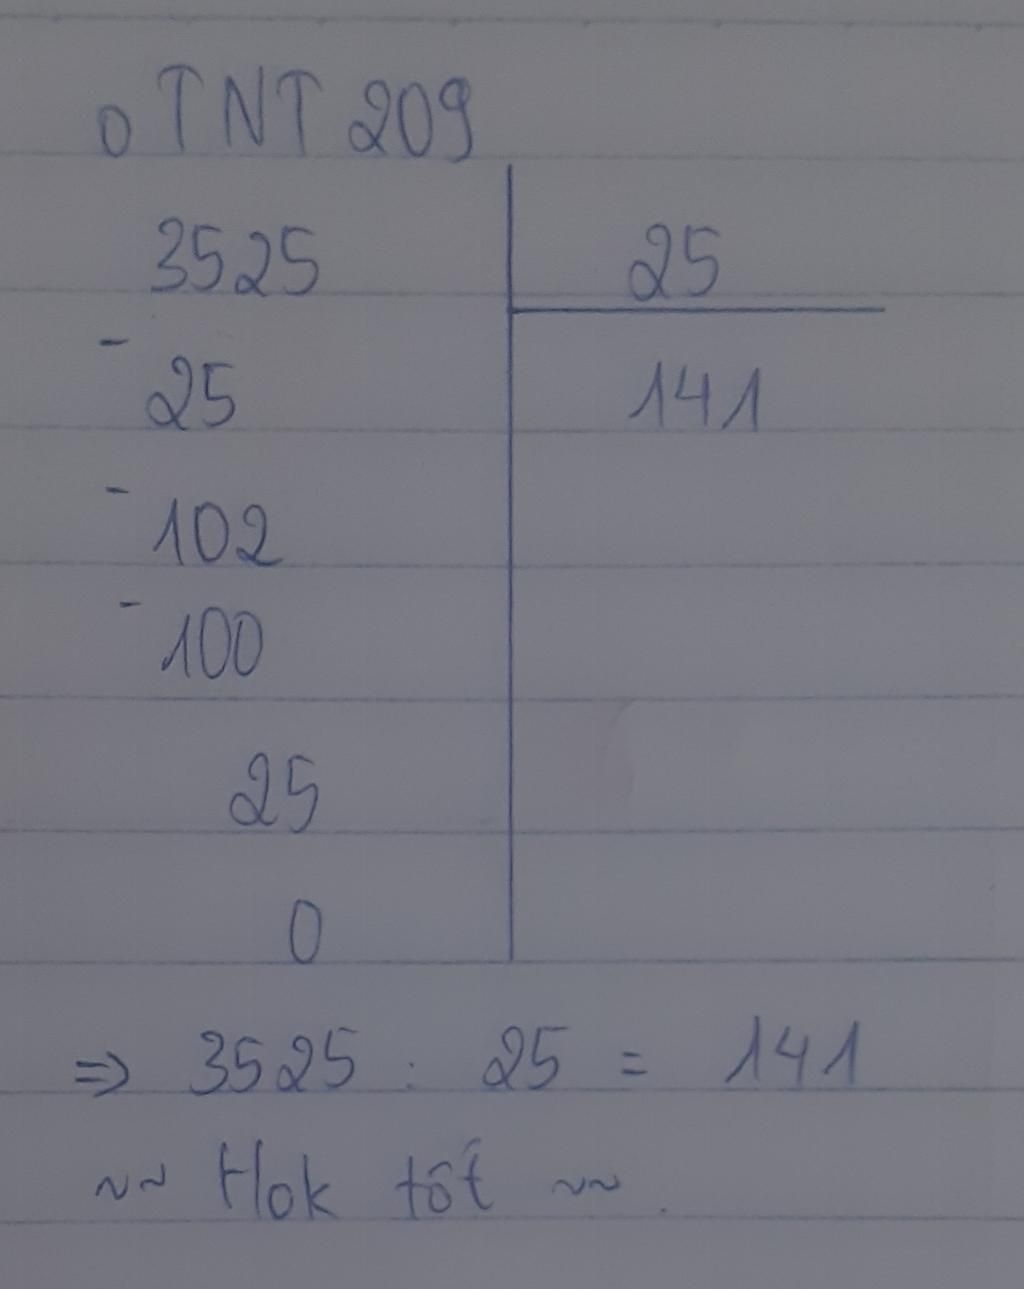 o TNT 209
3525 25
- 25 141
- 102
- 100
25
0
⇒ 3525 : 25 = 141
~~ Hok tốt ~~.